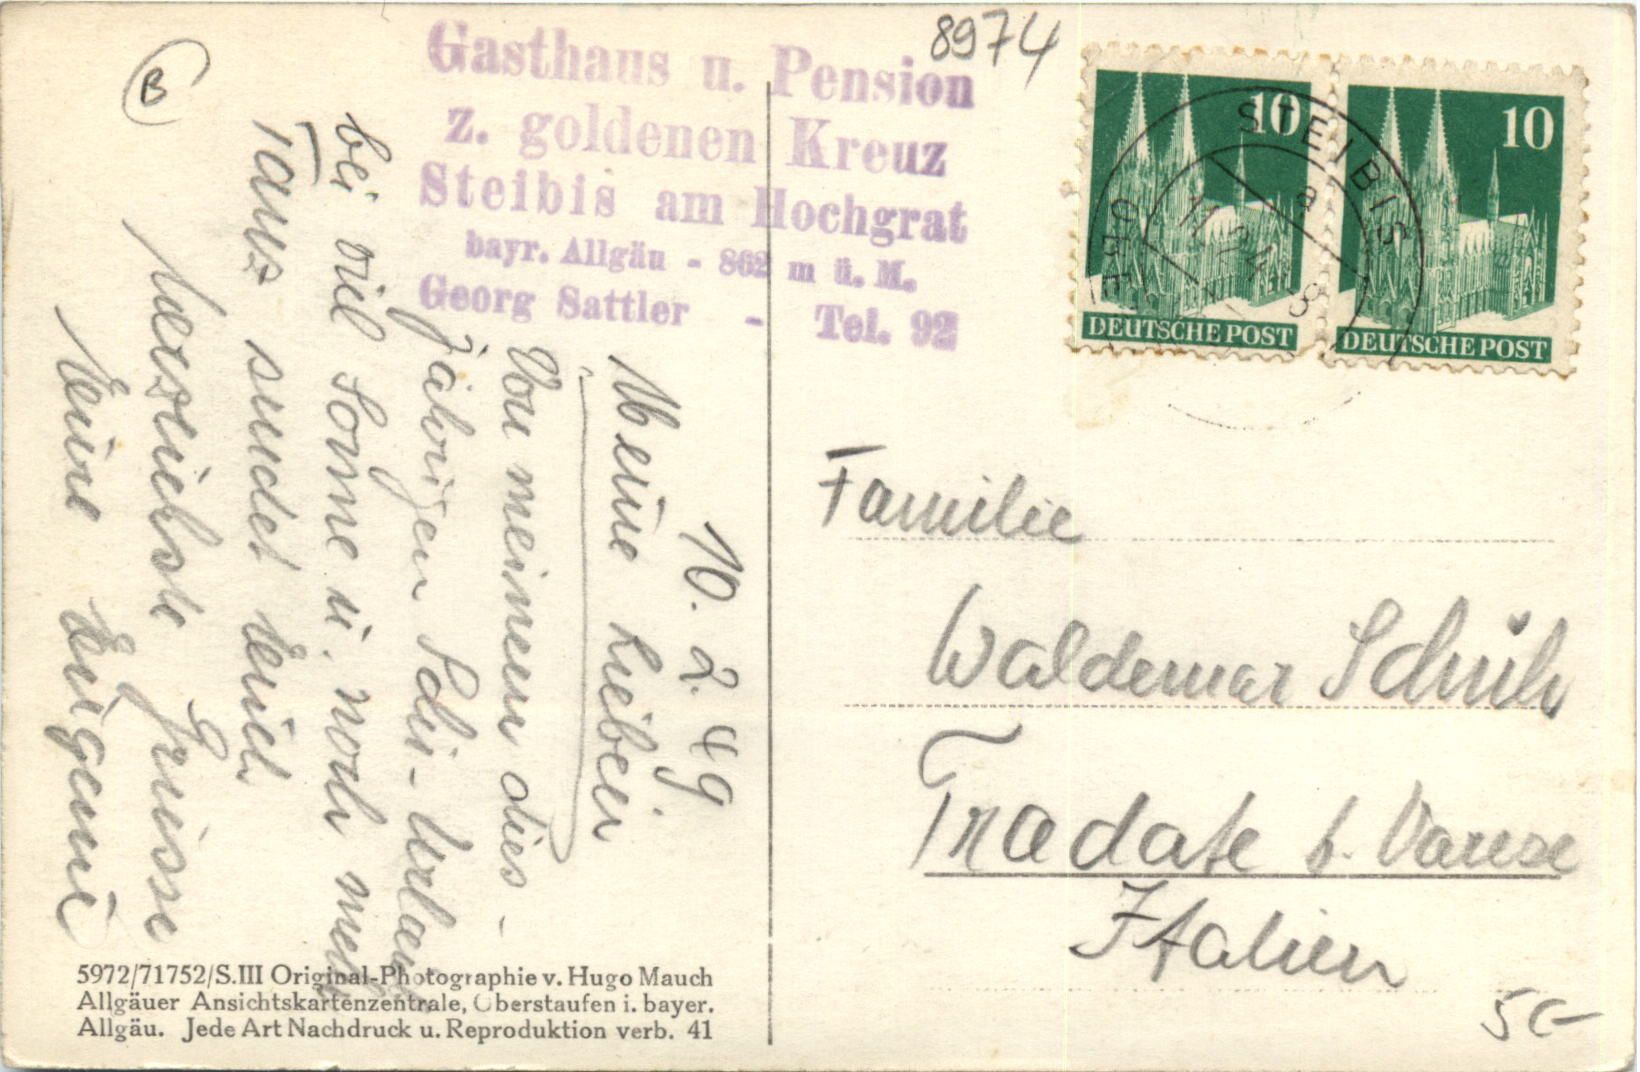 B
Gasthaus u. Pension
z. goldenen Kreuz
Steibis am Hochgrat
bayr. Allgäu - 862 m ü. M.
Georg Sattler - Tel. 92
8974
10
10
DEUTSCHE POST
DEUTSCHE POST
STEIBIS
a
10. 2. 49
Meine Lieben
Von meinem dies-
jährigen Ski-Urlaub
bei viel Sonne u. noch mehr
Tanz sendet Euch
herzlichste Grüsse
Eure Eugenie
Familie
Waldemar
Tradate b. Varese
Italien
5972/71752/S.III Original-Photographie v. Hugo Mauch
Allgäuer Ansichtskartenzentrale, Oberstaufen i. bayer.
Allgäu. Jede Art Nachdruck u. Reproduktion verb. 41